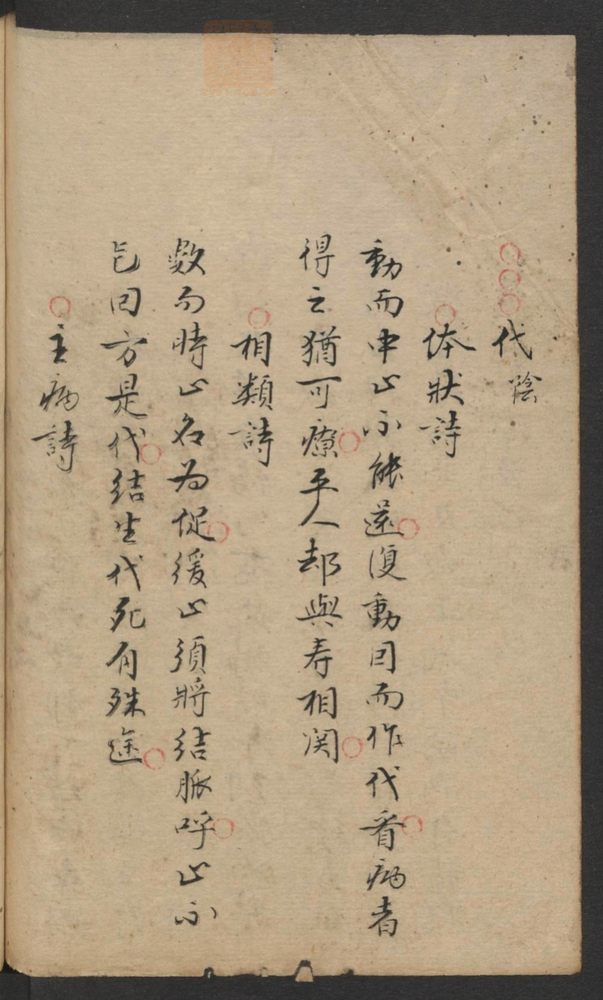 代 陰
体狀詩
動而中止不能還復動因而作代看病者
得之猶可療平人却與寿相関
相類詩
数而時止名為促緩止須將結脈呼止不
回方是代結生代死有殊途
主病詩